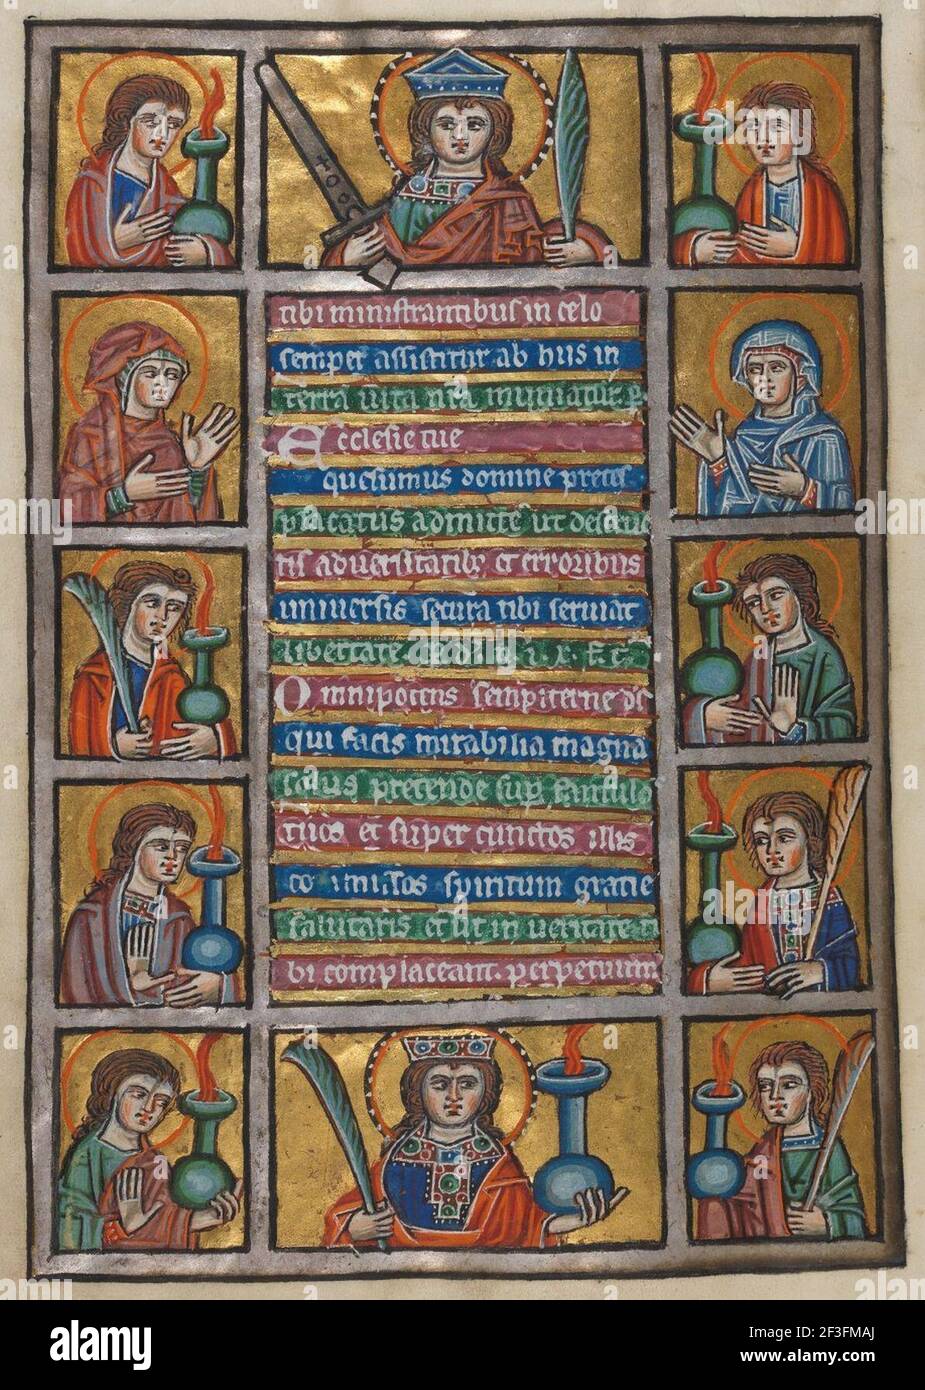 tibi ministrantibus in celo
semper assistitur ab hiis in
terra vita nra muniatur p
Ecclesie tue
quesumus domine preces
placatus admitte ut destruc
tis adversitatibz et erroribus
universis secura tibi serviat
libertate
Omnipotens sempiterne ds
qui facis mirabilia magna
solus pretende sup famulos
tuos et super cunctos illis
comissos spiritum gratie
salutaris et ut in veritate
bi complaceant. perpetuum
alamy
Image ID: 2F3FMAJ
www.alamy.com